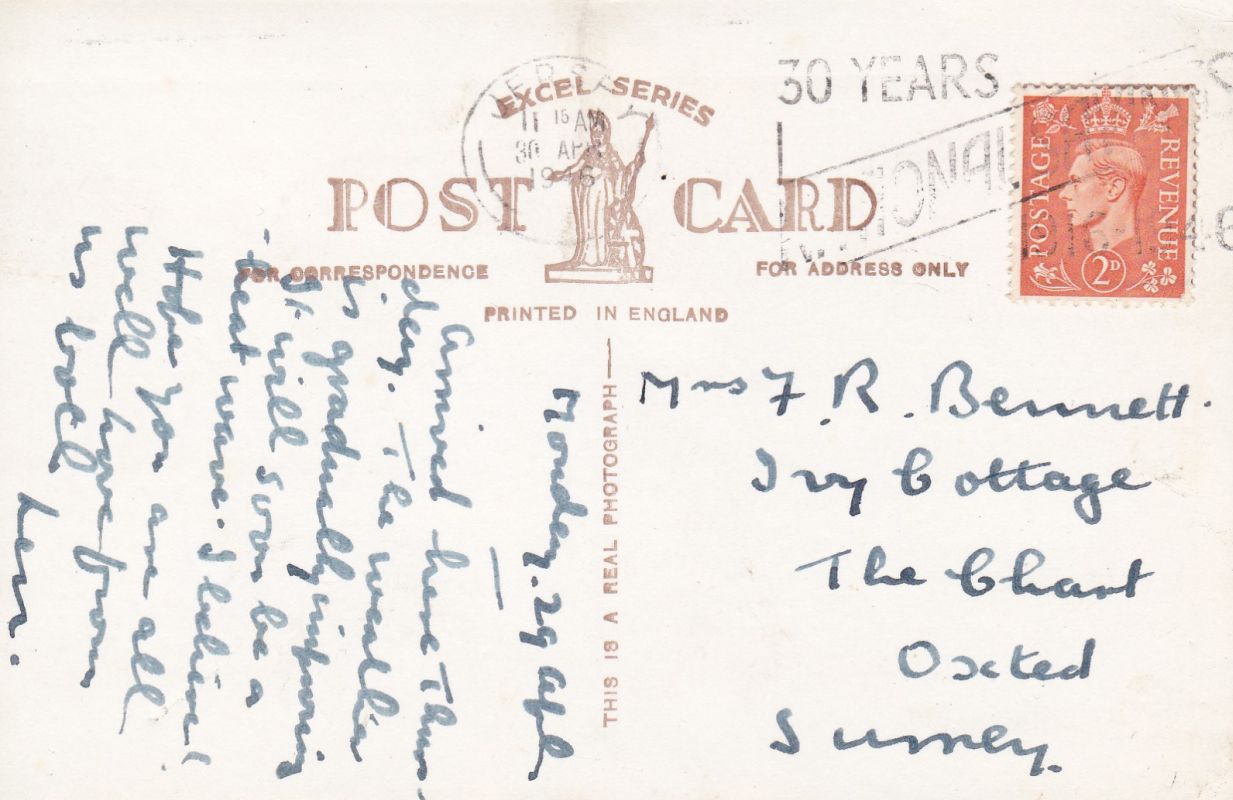 EXCEL SERIES
POST CARD
FOR CORRESPONDENCE
FOR ADDRESS ONLY
PRINTED IN ENGLAND
THIS IS A REAL PHOTOGRAPH
JERSEY
11 15 AM
30 APR
1946
30 YEARS
1916-1946
POSTAGE
REVENUE
2D
Monday. 29 Apl
Arrived here Thurs-
day. The weather
is gradually improving
It will soon be a
heat wave. I believe!
Hope you are all
well, love from
us both
Len.
Mrs F. R. Bennett.
Ivy Cottage
The Chart
Oxted
Surrey.